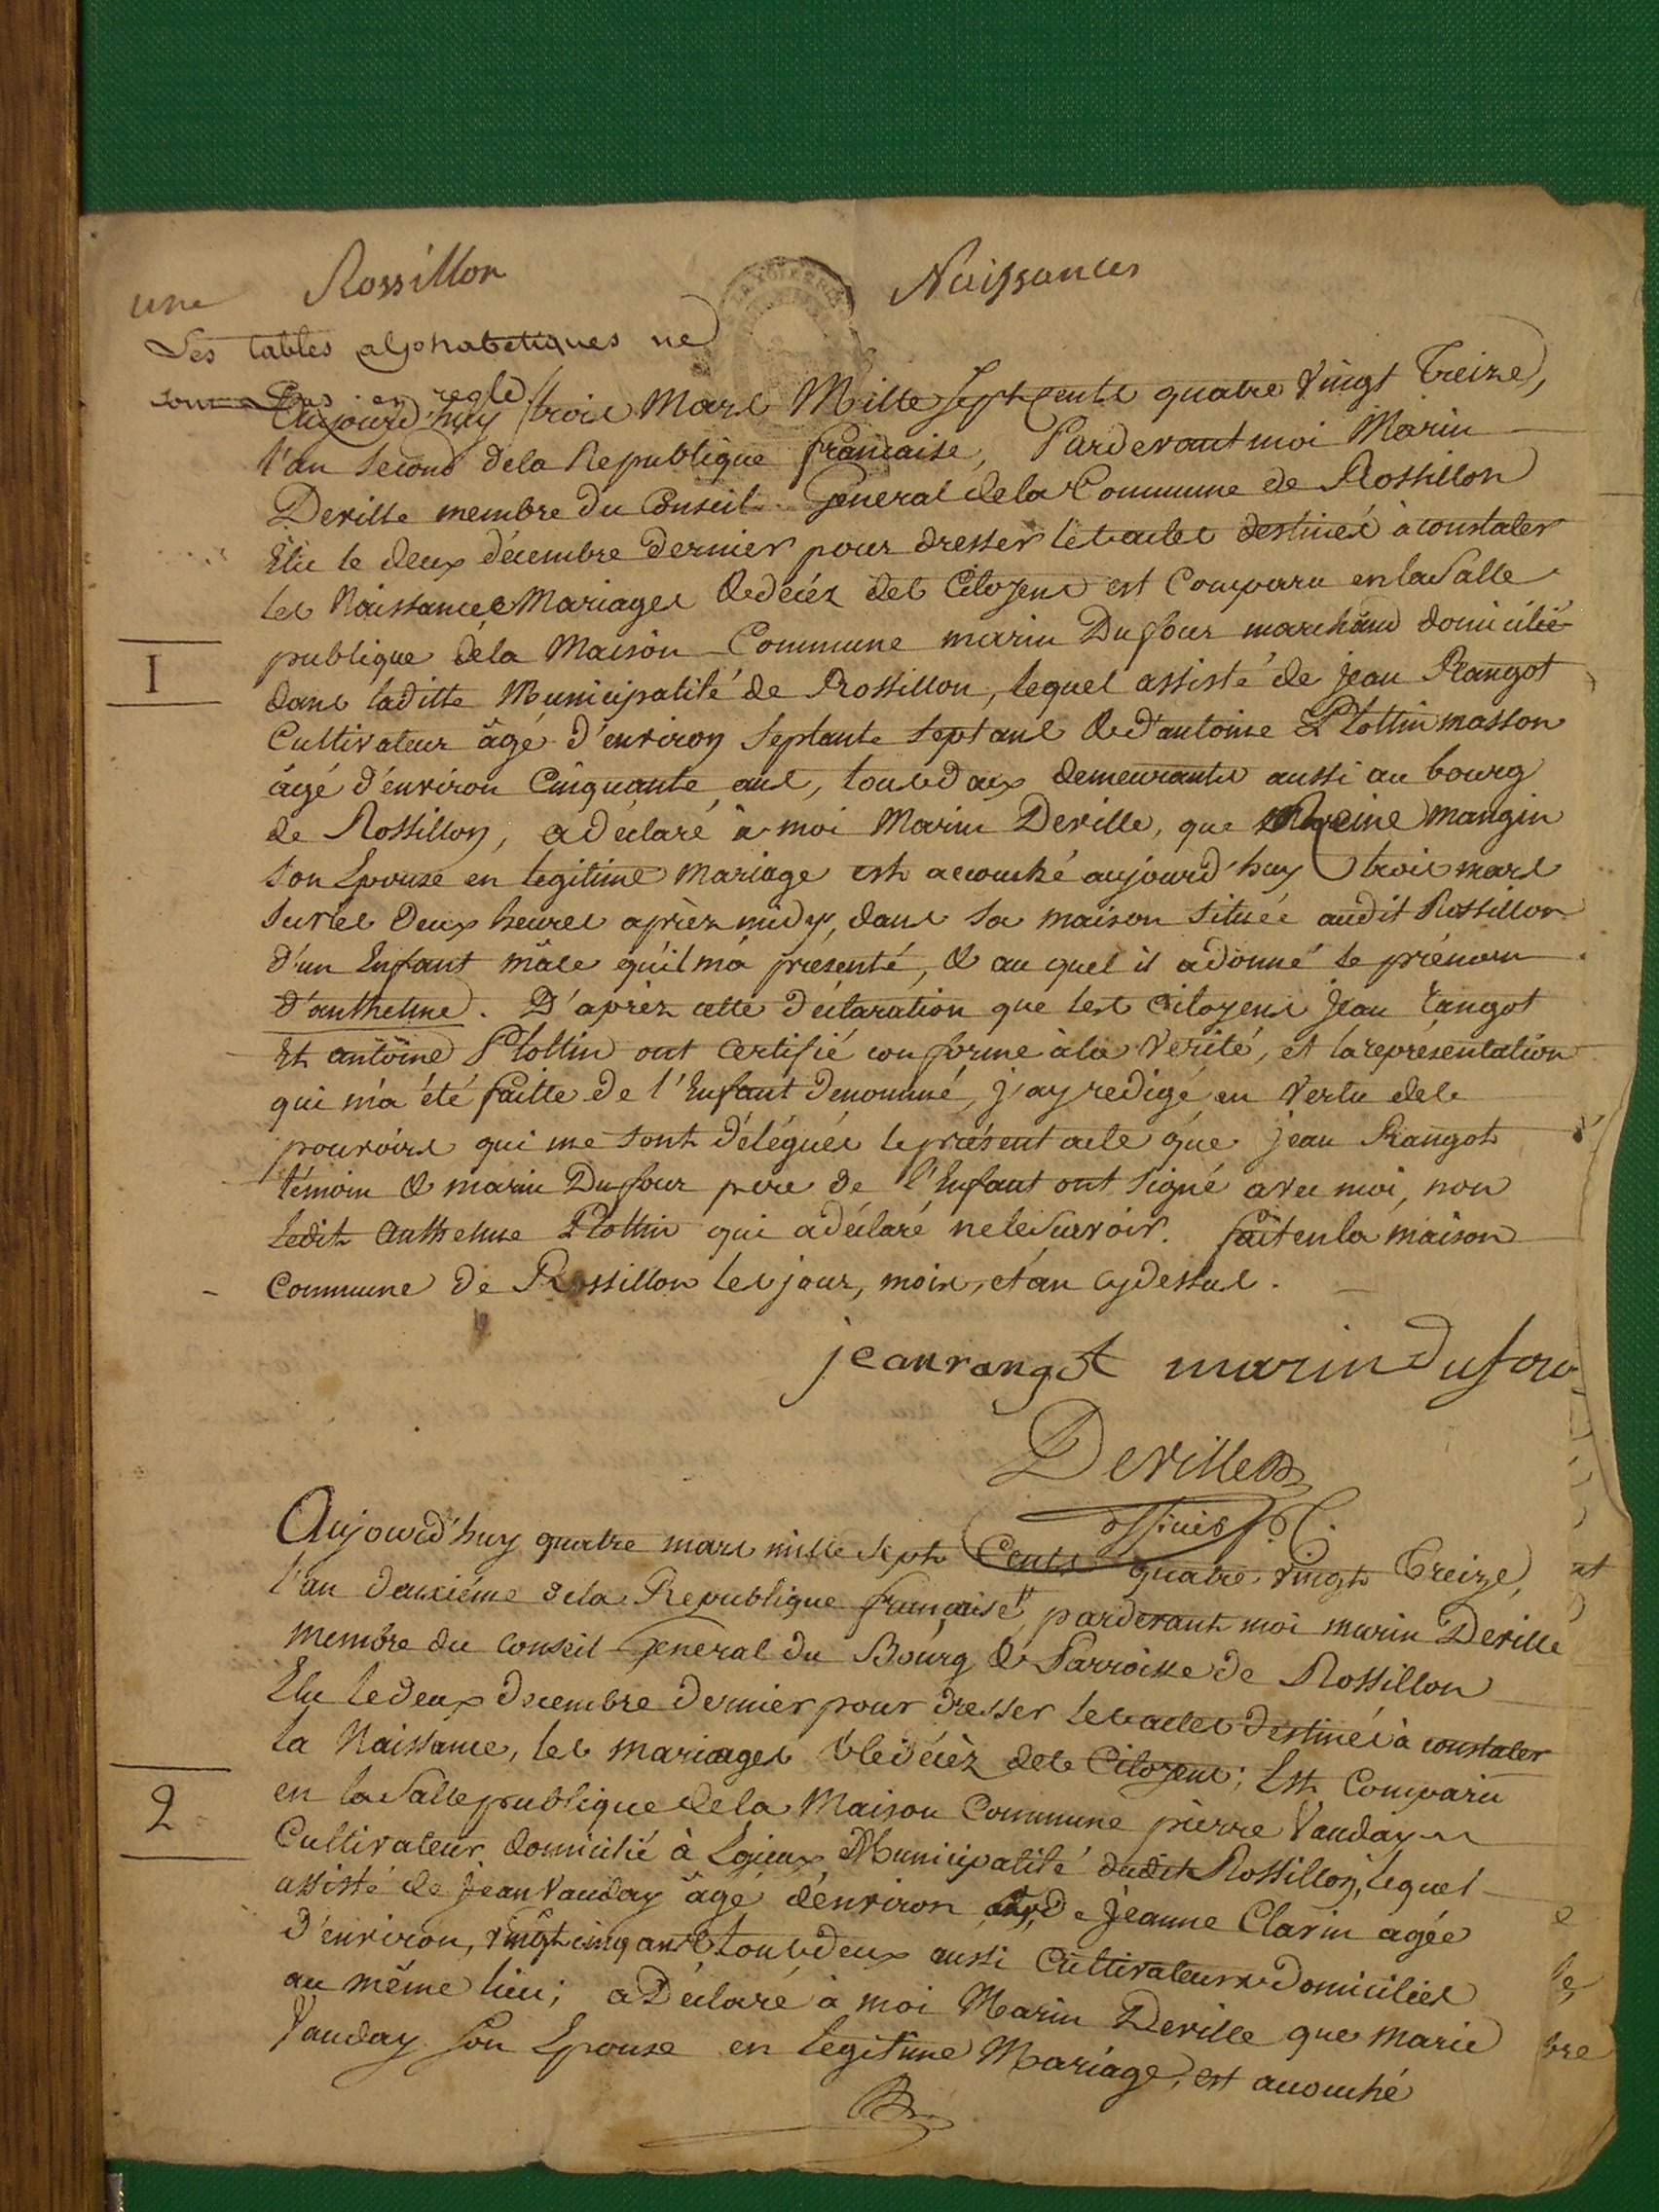 une Rossillon Naissances
Les tables alphabetiques ne
sont pas en regle
Aujourd'huy trois Mars Mille Sept Cents quatre Vingt Treize,
l'an Second dela Republique francaise, Pardevant moi Marin
Deville membre du Conseil General dela Commune de Rossillon
Elu le deux décembre dernier pour dresser les actes destinés à constater
les Naissances Mariages & décéz des Citoyens est Comparu en la Salle
publique dela Maison Commune marin Dufour marchand domicilié
1
dans laditte Municipalité de Rossillon, lequel assisté de jean Rangot
Cultivateur âgé d'environ Septante Sept ans & d'antoine Plottin masson
âgé d'environ Cinquante ans, tous deux demeurants aussi au bourg
de Rossillon, a déclaré à moi Marin Deville, que Reine Mangin
Son Epouse en legitime Mariage est accouché aujourd'huy trois mars
Sur les deux heures après midy, dans sa maison Située audit Rossillon
d'un Enfant mâle qu'il m'a présenté, & au quel il a donné le prénom
d'anthelme. D'après cette déclaration que les Citoyens Jean rangot
Et antoine Plottin ont Certifié conforme à la Verité, et la représentation
qui m'a été faitte de l'Enfant denommé, j'ay redigé en Vertu des
pouvoirs qui me sont délégués le présent acte que jean Rangot
témoin & marin Dufour pere de l'Enfant ont signé avec moi, non
Ledit anthelme Plottin qui a déclaré ne le Savoir. fait en la maison
Commune de Rossillon les jour, mois, et an cy dessus.
jean rangot marin dufou
Deville
officier p.
Aujourd'huy quatre mars mille Sept Cents quatre Vingt Treize,
l'an deuxiéme dela Republique française pardevant moi marin Deville
membre du Conseil General du Bourg & Parroisse de Rossillon
Elu le deux decembre dernier pour dresser les actes destinés à constater
la Naissance, les mariages & les décèz des Citoyens; Est Comparu
2
en la Salle publique dela Maison Commune pierre Vauday
Cultivateur domicilié à Municipalité dudit Rossillon, lequel
assisté de Jean Vauday âgé d'environ de Jeanne Clavin agée
d'environ, vingt cinq ans tous deux aussi Cultivateurs Domiciliés
au même lieu; a Déclaré à moi Marin Deville que Marie
Vauday Son Epouse en legitime Mariage, est accouché